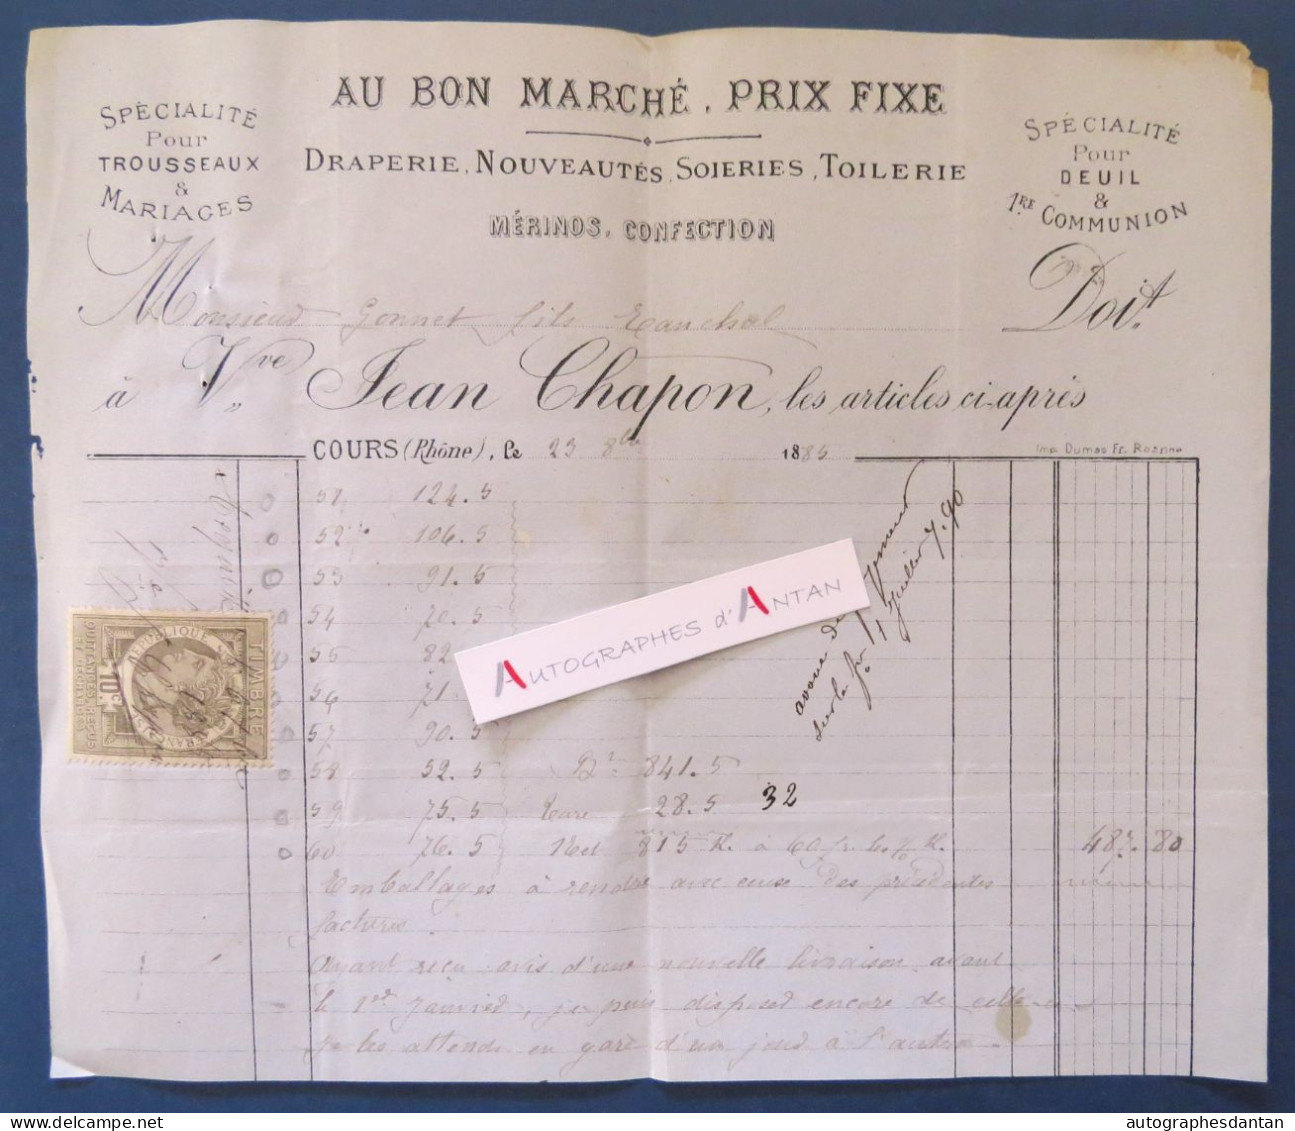 AU BON MARCHÉ, PRIX FIXE
DRAPERIE, NOUVEAUTÉS, SOIERIES, TOILERIE
MÉRINOS, CONFECTION
SPÉCIALITÉ
Pour
TROUSSEAUX
&
MARIAGES
SPÉCIALITÉ
Pour
DEUIL
&
1RE COMMUNION
Monsieur Gonnet fils Doit
à Vve Jean Chapon, les articles ci-après
COURS (Rhône), le 23 8bre 1885
Imp. Dumas Fr. Roanne
51 124.5
52 106.5
53 91.5
54 70.5
55 82
56 71.
57 90.5
58 52.5 841.5
59 75.5 Tare 28.5 32
60 76.5 Net 815 K. à 60 fr. les % K. 487.80
Emballages à rendre avec ceux des précédentes
factures.
Ayant reçu avis d'une nouvelle livraison avant
le 1er Janvier, je puis disposer encore de celle-ci
Je les attends en gare d'un jour à l'autre.
sur la fre 1 Juillet 7.90
AUTOGRAPHES d'ANTAN
TIMBRE
QUITTANCES REÇUS
10c
RÉPUBLIQUE FRANÇAISE
autographesdantan